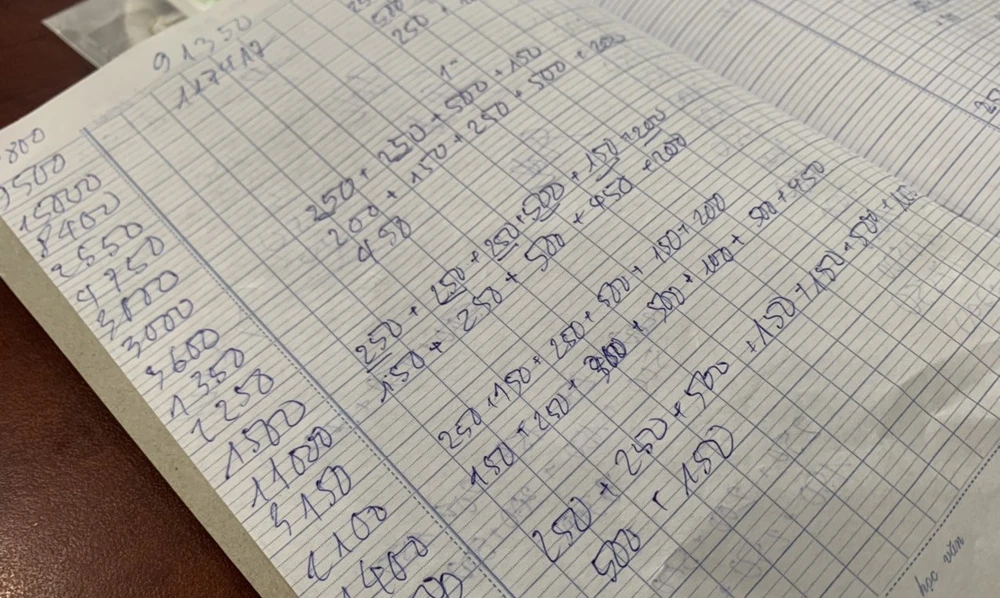 91350
117417
800
15000
8400
2550
4750
3000
3000
3600
1350
1250
1500
11000
3150
2100
1400
500
250 +
1-
250 + 250 + 500 + 150
200 + 150 + 250 + 500 + 200
450
250 + 250 + 250 + 500 + 150 + 200
150 + 250 + 500 + 450 + 200
250 + 150 + 250 + 500 + 150 + 200
150 + 250 + 300 + 500 + 100 + 500 + 450
250 + 250 + 500 + 150 + 150 + 500 +
500 + 150
học văn